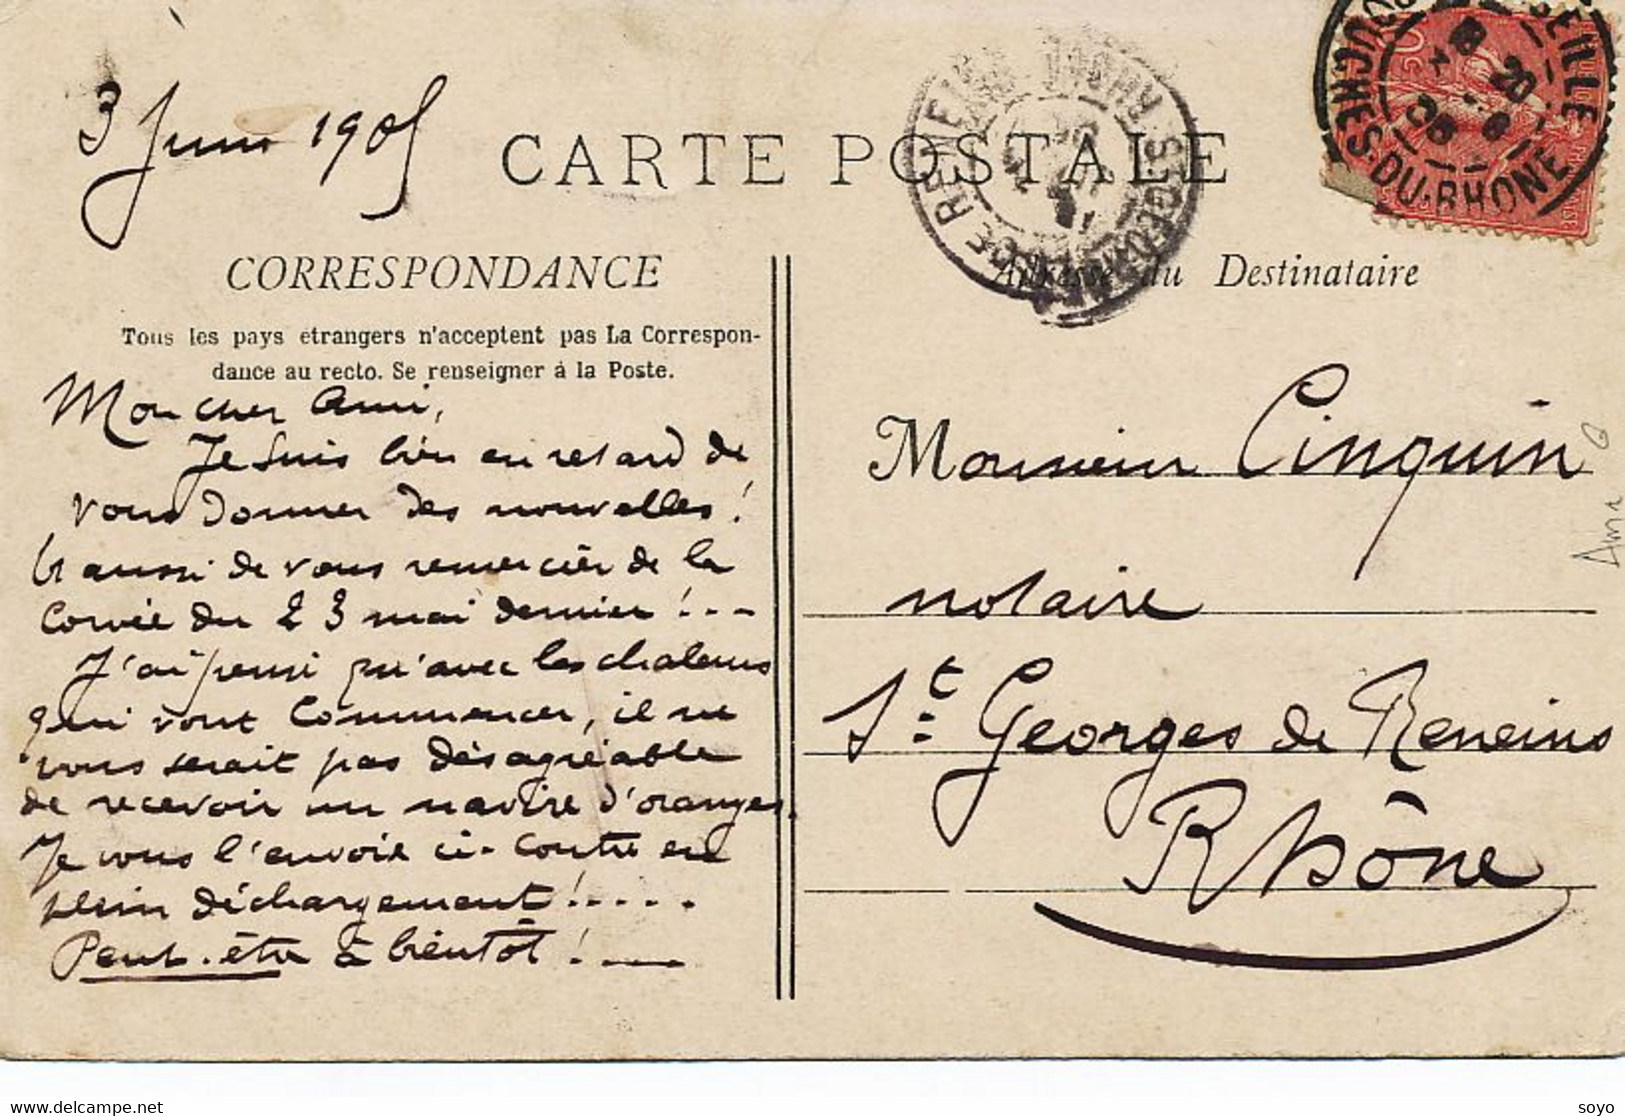 3 Juin 1905
CARTE POSTALE
CORRESPONDANCE
Tous les pays étrangers n'acceptent pas La Correspon-
dance au recto. Se renseigner à la Poste.
Mon cher Ami,
Je suis bien en retard de
vous donner des nouvelles !
Et aussi de vous remercier de la
Corvée du 23 mai dernier !...
J'ai pensé qu'avec les chaleurs
qui vont Commencer, il ne
vous serait pas désagréable
de recevoir un navire d'oranges.
Je vous l'envoie ci-contre en
plein déchargement !.....
Peut-être à bientôt !
Adresse du Destinataire
Monsieur Cinquin
notaire
St Georges de Reneins
Rhône
BOUCHES-DU-RHONE
ST GEORGES DE RENEINS
delcampe.net
soyo